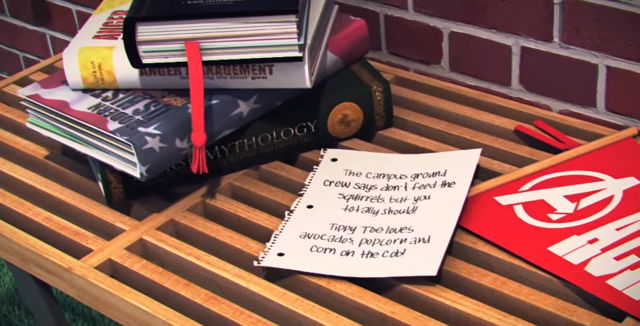 ANGER
ANGER MANAGEMENT
MYTHOLOGY
The campus ground
crew says don't feed the
squirrels but you
totally should!
Tippy Toe loves
avocados, popcorn and
corn on the cob!